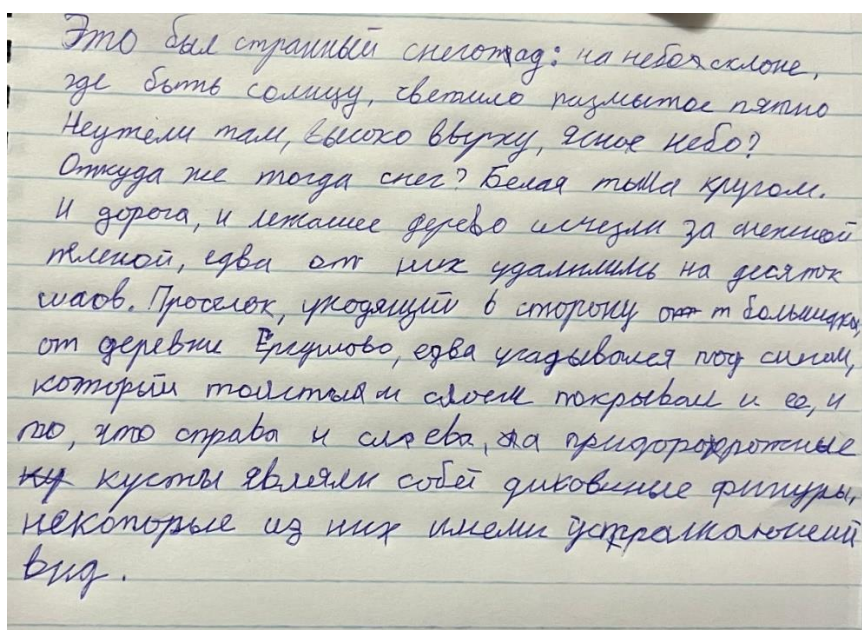 Это был странный снегопад: на небосклоне,
где быть солнцу, светило размытое пятно
Неужели там, высоко вверху, ясное небо?
Откуда же тогда снег? Белая тьма кругом.
И дорога, и лежащее дерево исчезли за снежной
пеленой, едва от них удалились на десяток
шагов. Проселок, уходящий в сторону от большака,
от деревни Ергушово, едва угадывался под снегом,
который толстым слоем покрывал и ее, и
то, что справа и слева, а придорожные
кусты являли собей диковиные фигуры,
некоторые из них имели устрашающий
вид.